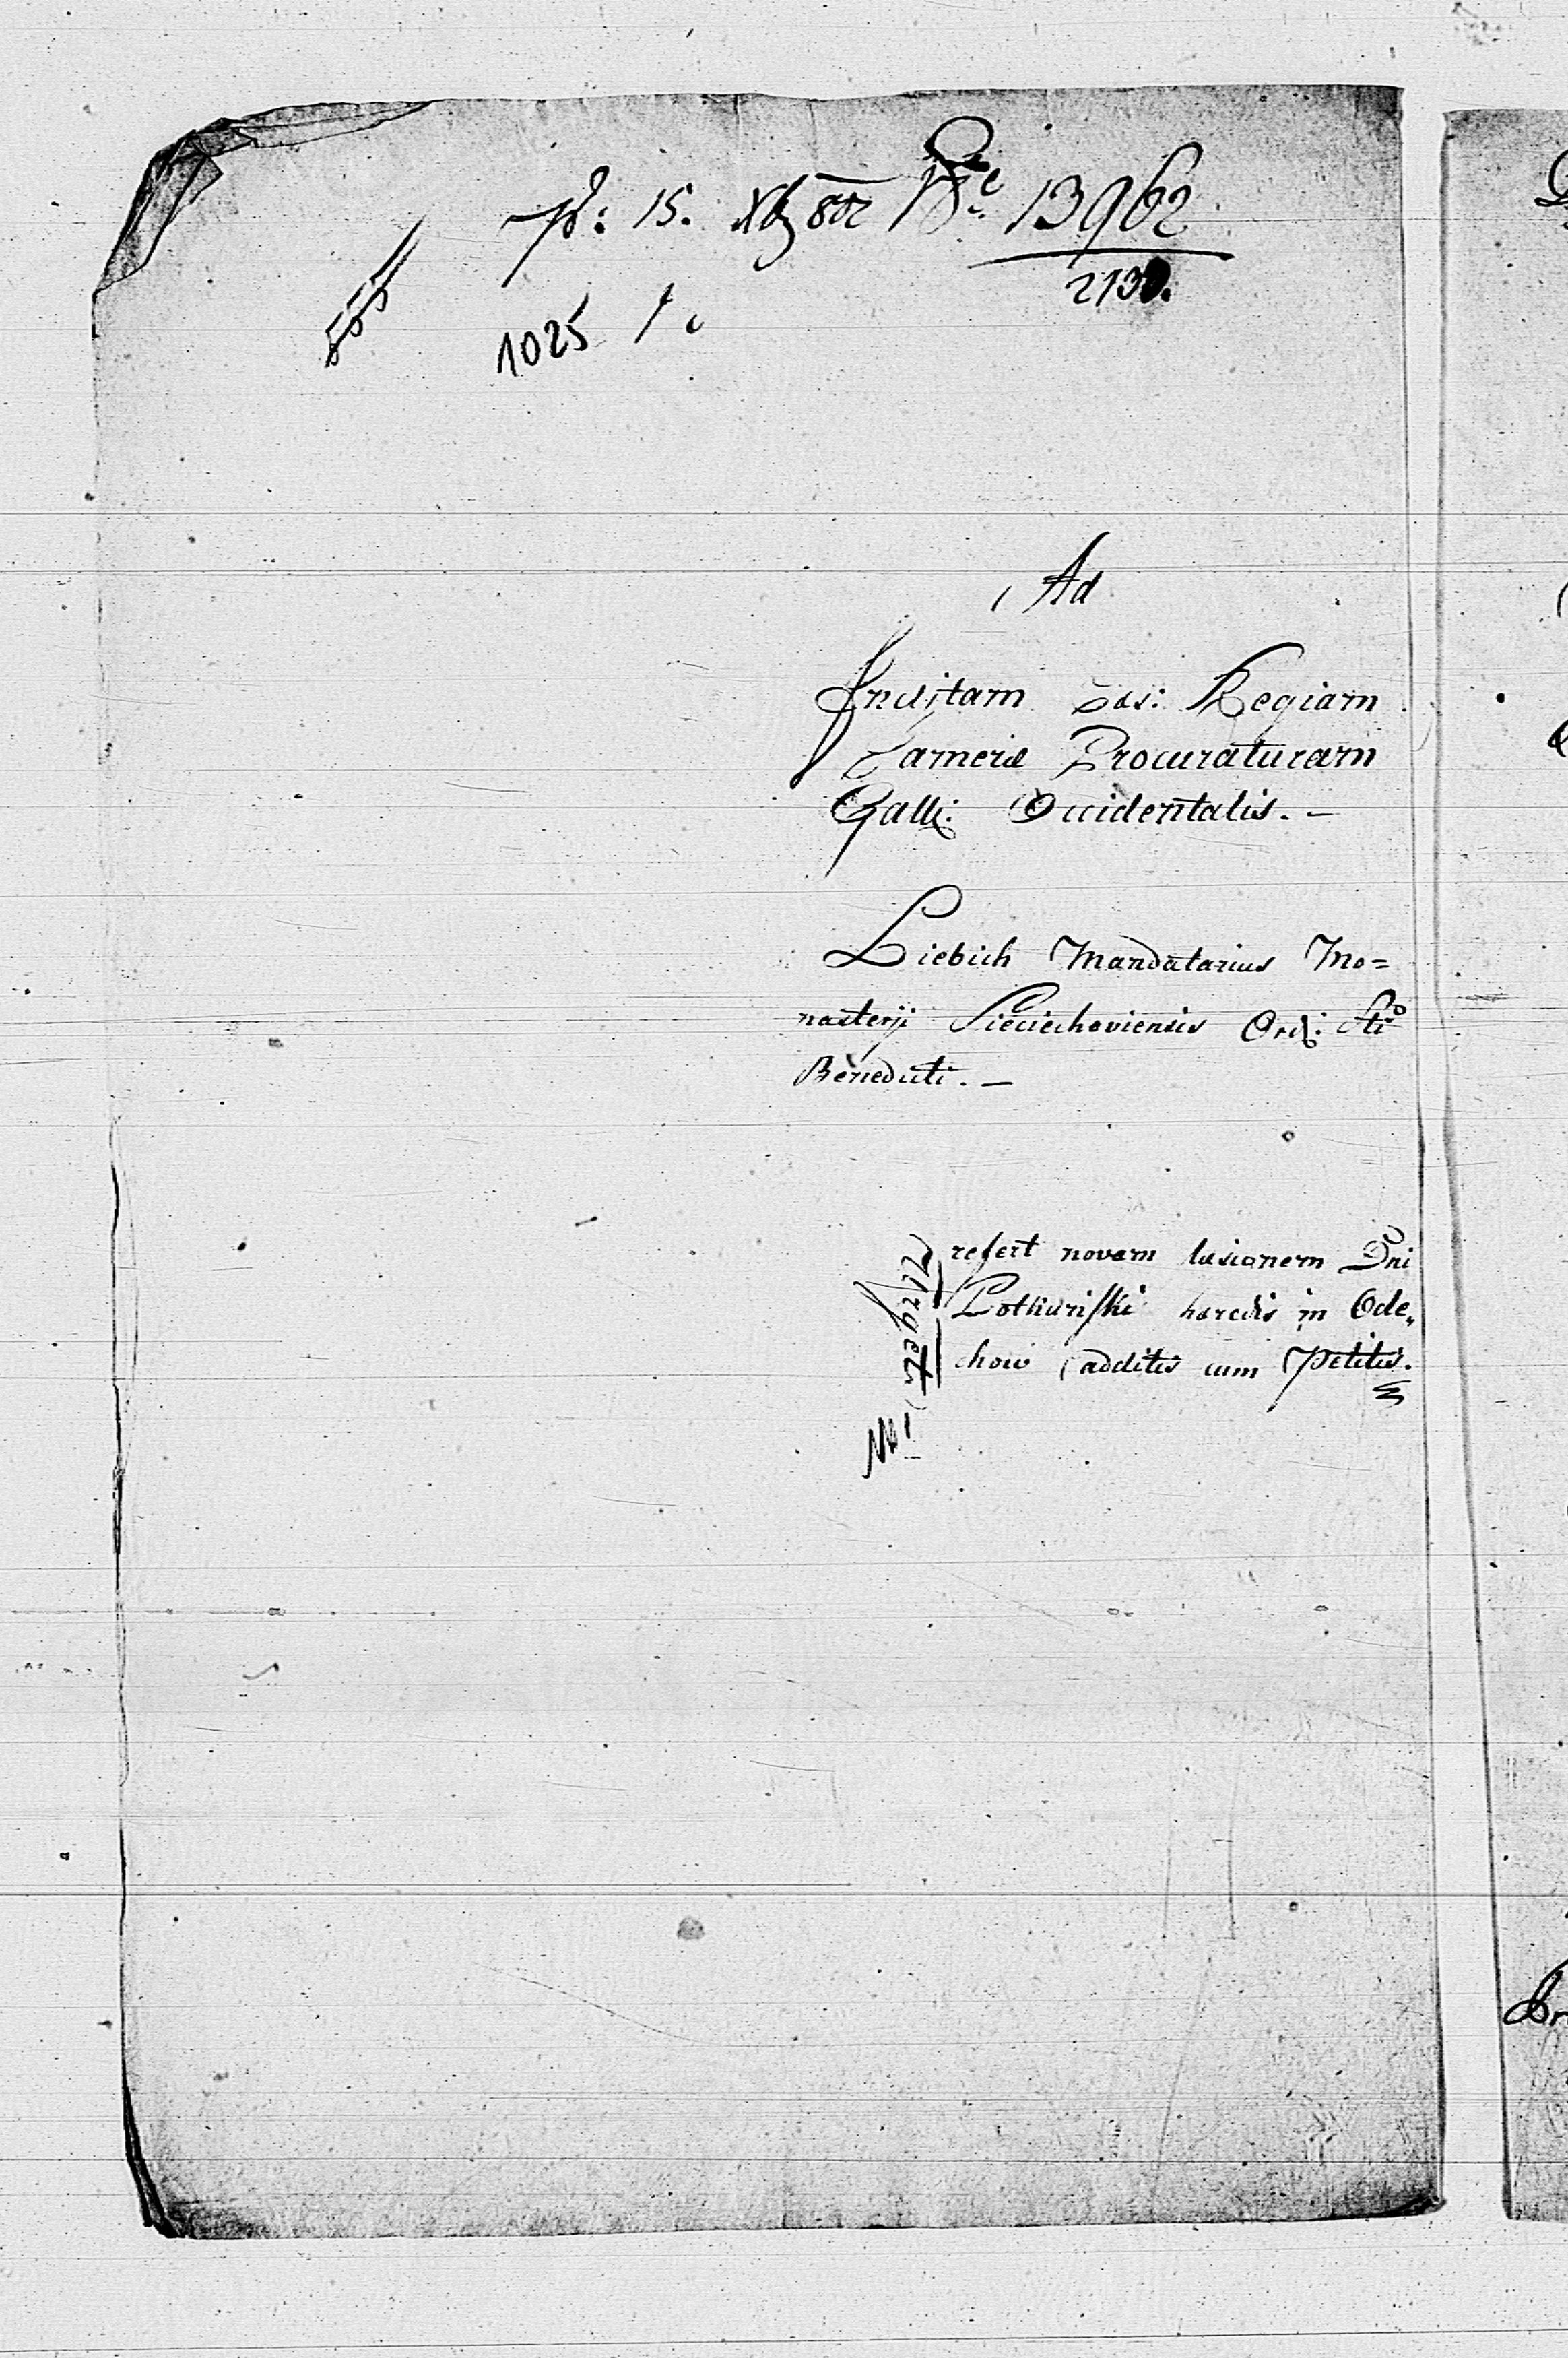 pr: 15. Xbr 802 13962
2130.
1025
Ad
Inclytam Cæs: Regiam
Cameræ Procuraturam
Galli: Occidentalis. –
Liebich Mandatarius Mo=
nasterii Sieciechoviensis Ord: Sti
Benedicti. –
refert novam læsionem Dni
hæredis in Ode„
chow additis cum Petitis.